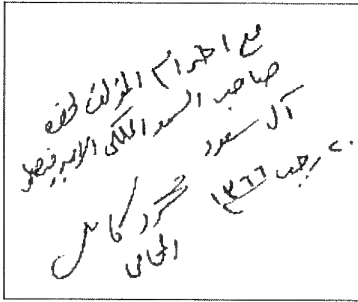 مع احترام المؤلف لحضرة
صاحب السمو الملكي الامير فيصل
آل سعود
٢٠ رجب ١٣٦٦
كامل
المحامي